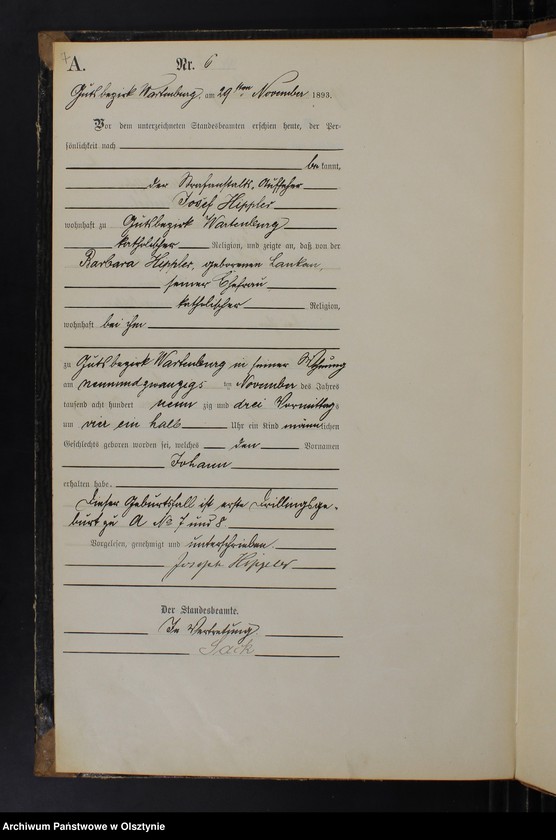 7
A. Nr. 6
Gutsbezirk Wartenburg, am 29ten November 1893.
Vor dem unterzeichneten Standesbeamten erschien heute, der Per-
sönlichkeit nach
be kannt,
der Strafanstalts-Aufseher
Josef Hippler
wohnhaft zu Gutsbezirk Wartenburg
katholischer Religion, und zeigte an, daß von der
Barbara Hippler, geborenen Lankau,
seiner Ehefrau
katholischer Religion,
wohnhaft bei ihm
zu Gutsbezirk Wartenburg in seiner Wohnung
am neunundzwanzigs ten November des Jahres
tausend acht hundert neun zig und drei Vormittags
um vier ein halb Uhr ein Kind männlichen
Geschlechts geboren worden sei, welches den Vornamen
Johann
erhalten habe.
Dieser Geburtsfall ist erste Drillingsge-
burt zu A No 7 und 8
Vorgelesen, genehmigt und unterschrieben
Joseph Hippler
Der Standesbeamte.
In Vertretung.
Sack
Archiwum Państwowe w Olsztynie